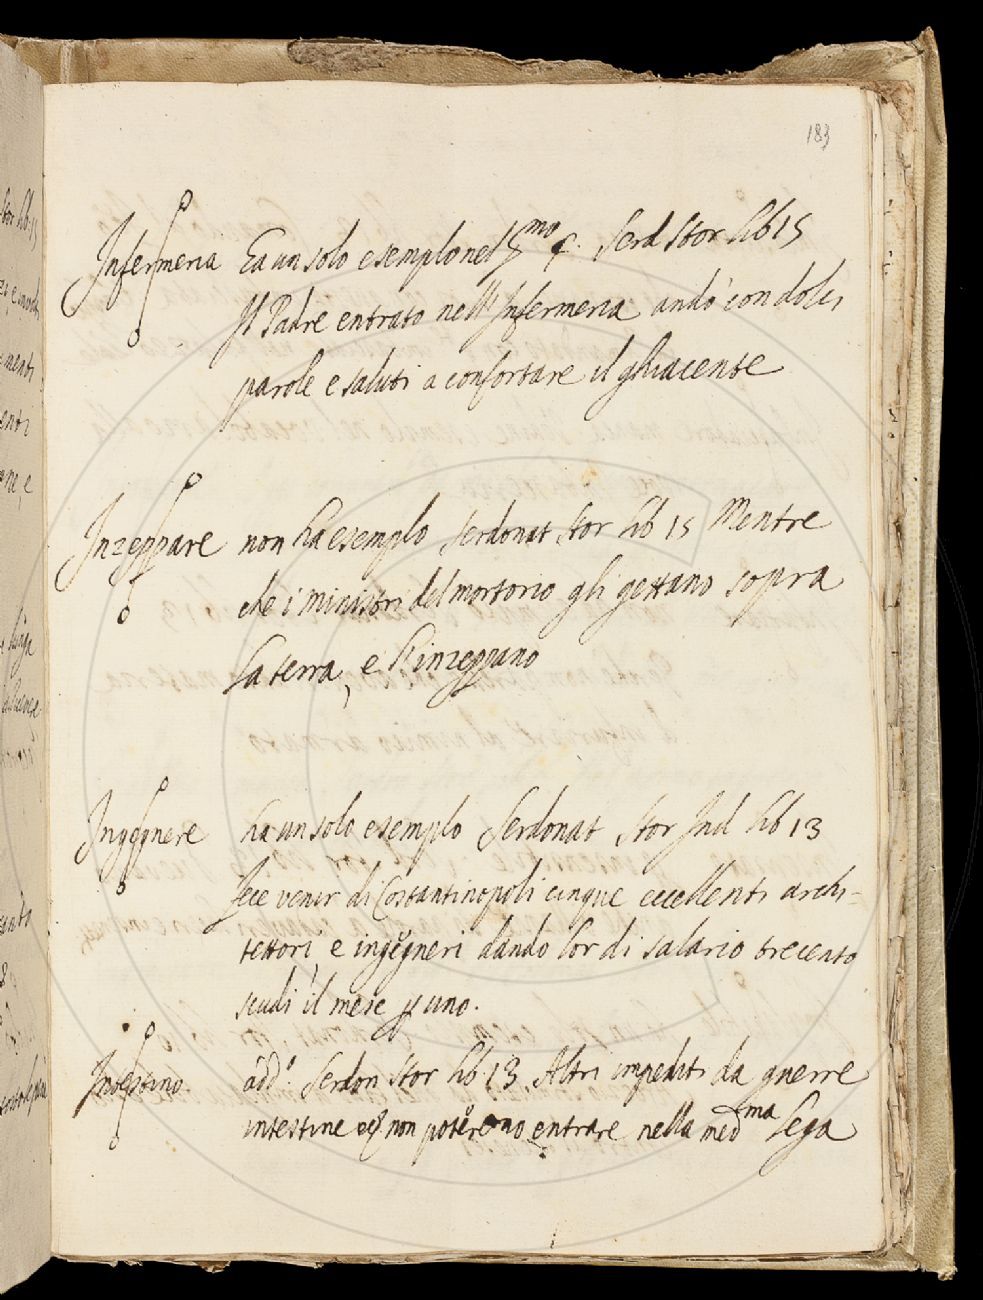 183
Infermeria Ea un solo esemplo nel 5.mo c. Serd Stor lib 15
Il Padre entrato nell'Infermeria andò con dolci
parole e saluti a confortare il ghiacente
Inzeppare non ha esemplo Serdonat Stor lib 15 Mentre
che i Ministri del mortorio gli gettano sopra
la terra, e l'inzeppano
Ingegnere ha un solo esemplo Serdonat Stor Ind lib 13
fece venir di Costantinopoli cinque eccellenti archi-
tettori e ingegneri dando lor di salario trecento
scudi il mese p uno.
Intestino. add.o Serdon Stor lib. 13. Altri impediti da guerre
intestine non poterono entrare nella med.ma Lega